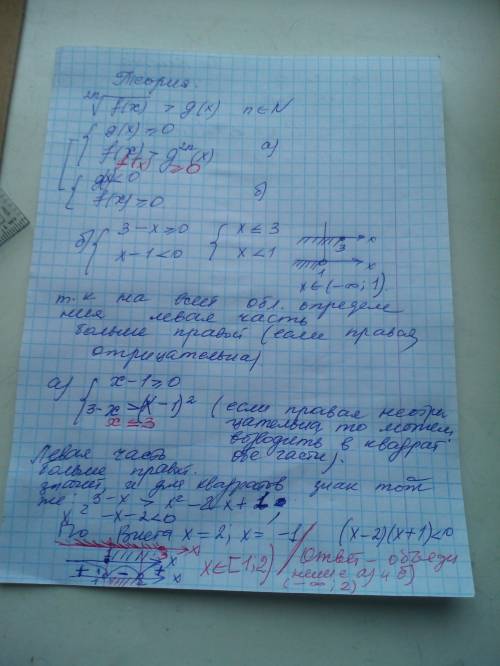 Теория.
²ⁿ√f(x) > g(x) n∈N
g(x) ≥ 0
f(x) > g²ⁿ(x) а)
f(x) ≥ 0
g(x) < 0
f(x) ≥ 0 б)
б) { 3-x ≥ 0 { x ≤ 3
x-1 < 0 x < 1
3 x
1 x
x∈(-∞; 1)
т.к на всей обл. определе
ния левая часть
больше правой (если правая
отрицательна)
а) { x-1 ≥ 0
3-x > (x-1)² (если правая неотри
x ≤ 3 цательна то можем
возводить в квадрат
обе части).
Левая часть
больше правой.
значит, и для квадратов знак тот
же: 3-x > x²-2x+1
x²-x-2<0
По Виета x=2; x=-1 (x-2)(x+1)<0
3 x
1 x
+ -1 - 2 + x
x∈[1;2) / Ответ - объеди
нение а) и б)
(-∞; 2)